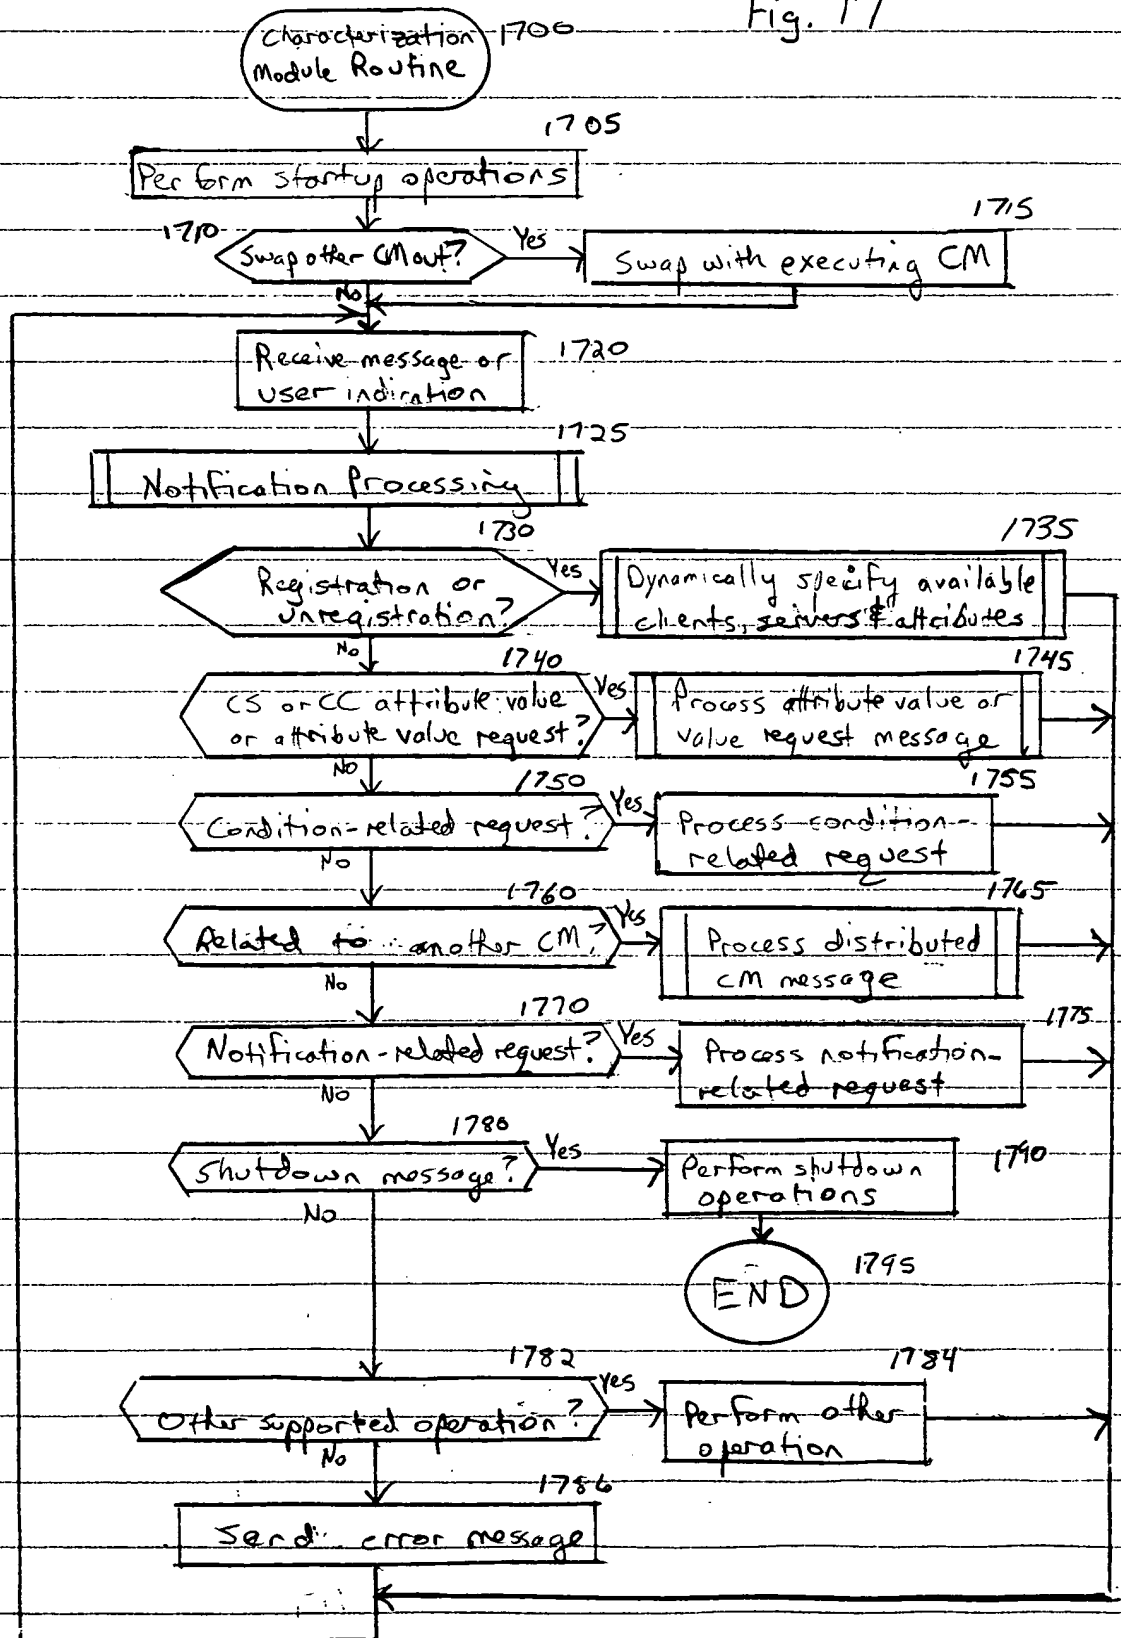 Fig. 17
Characterization 1700
Module Routine
1705
Perform startup operations
1710
Swap other CM out?
Yes
1715
Swap with executing CM
No
Receive message or
user indication
1720
1725
Notification Processing
1730
Registration or
unregistration?
Yes
1735
Dynamically specify available
clients, servers & attributes
No
1740
CS or CC attribute value
or attribute value request?
Yes
1745
Process attribute value or
value request message
No
1750
Condition-related request?
Yes
1755
Process condition-
related request
No
1760
Related to another CM?
Yes
1765
Process distributed
CM message
No
1770
Notification-related request?
Yes
1775
Process notification-
related request
No
1780
Shutdown message?
Yes
Perform shutdown
operations
1790
No
END
1795
1782
Other supported operation?
Yes
1784
Perform other
operation
No
1786
Send error message